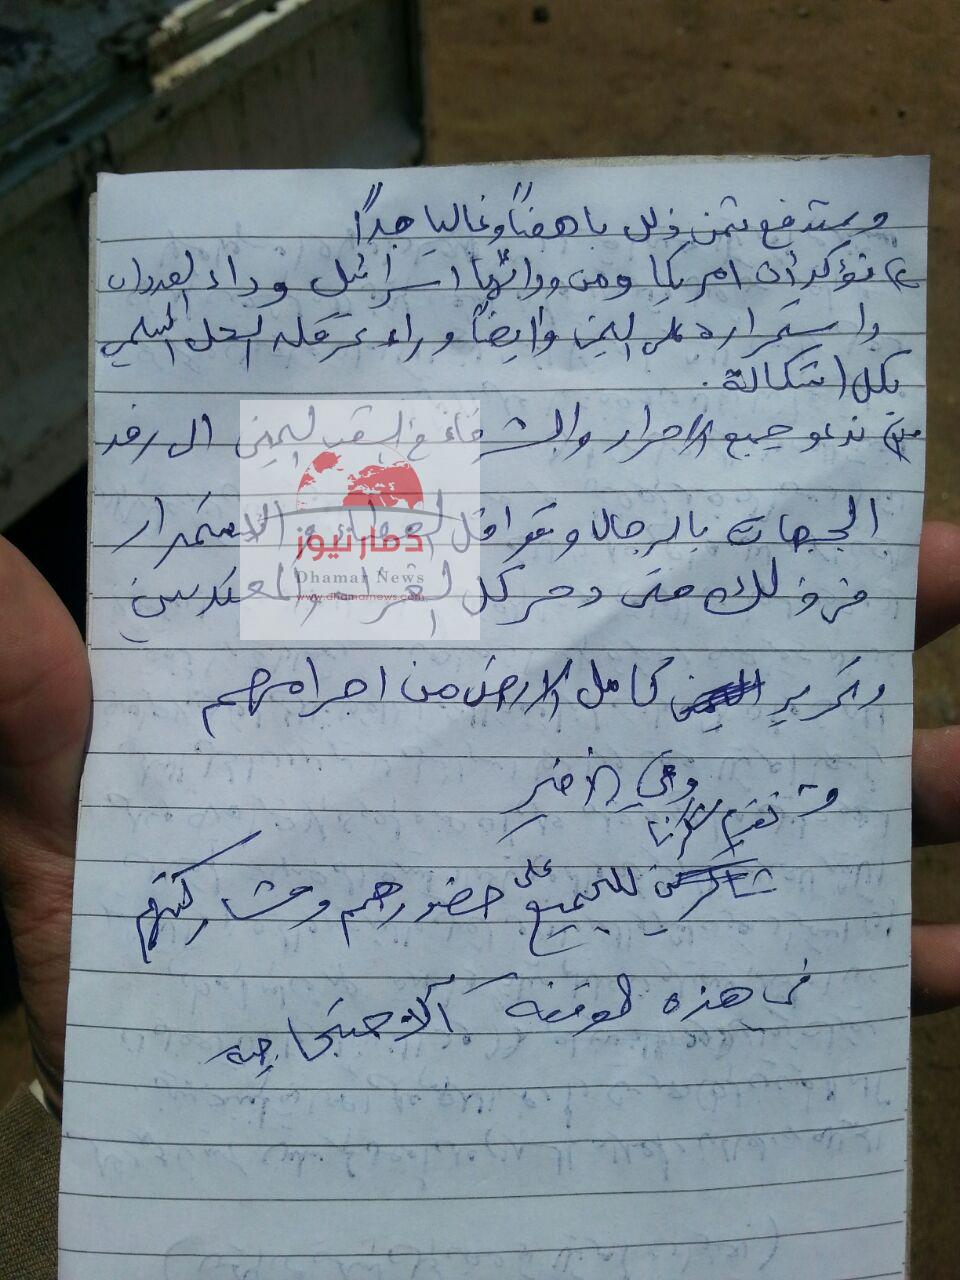 وستدفع ثمن ذلك باهضاً وغاليا جداً
٤) نؤكد أن امريكا ومن ورائها اسرائيل وراء العدوان
واستمراره على اليمن وأيضاً وراء عرقلة الحل السلمي
بكل اشكالة .
ندعو جميع الاحرار والشرفاء في الشعب اليمني الى رفد
الجبهات بالرجال وقوافل العطاء والاستمرار
في ذلك حتى دحر كل الغزاة والمعتدين
وتحرير كامل الارض من اجرامهم
وفي الاخير
نتقدم بشكرنا
للجميع على حضورهم ومشاركتهم
في هذه الوقفة الاحتجاجية
دمار نيوز
Dhamar News
www.dhamarnews.com